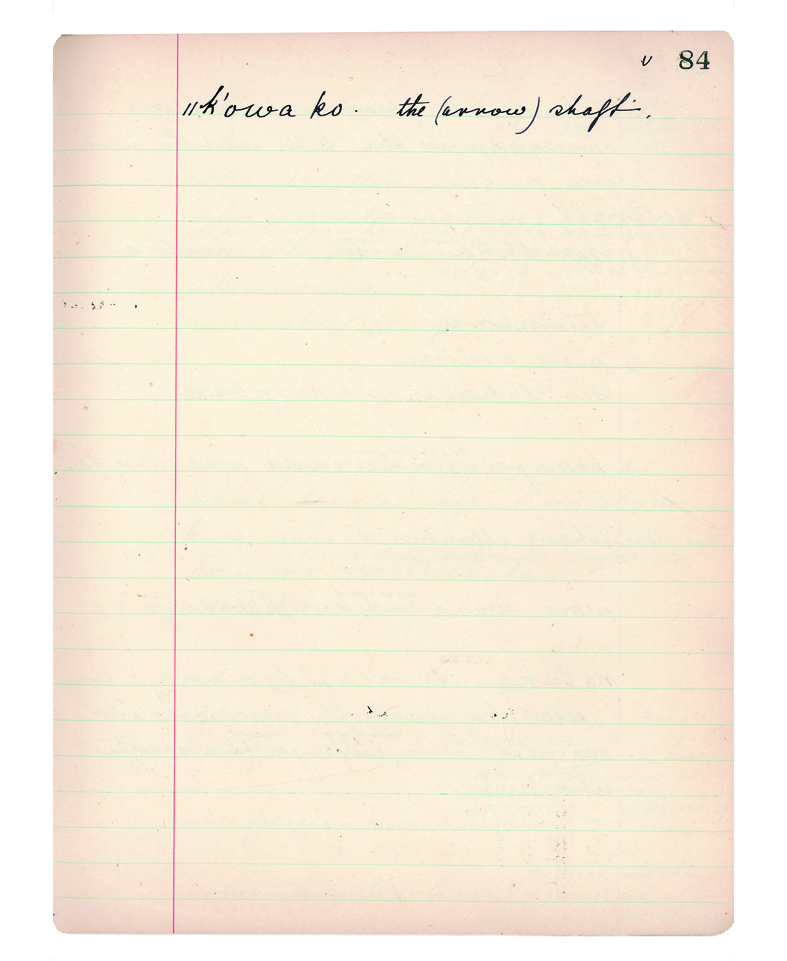 υ 84
‖k'owa ko. the (arrow) shaft.